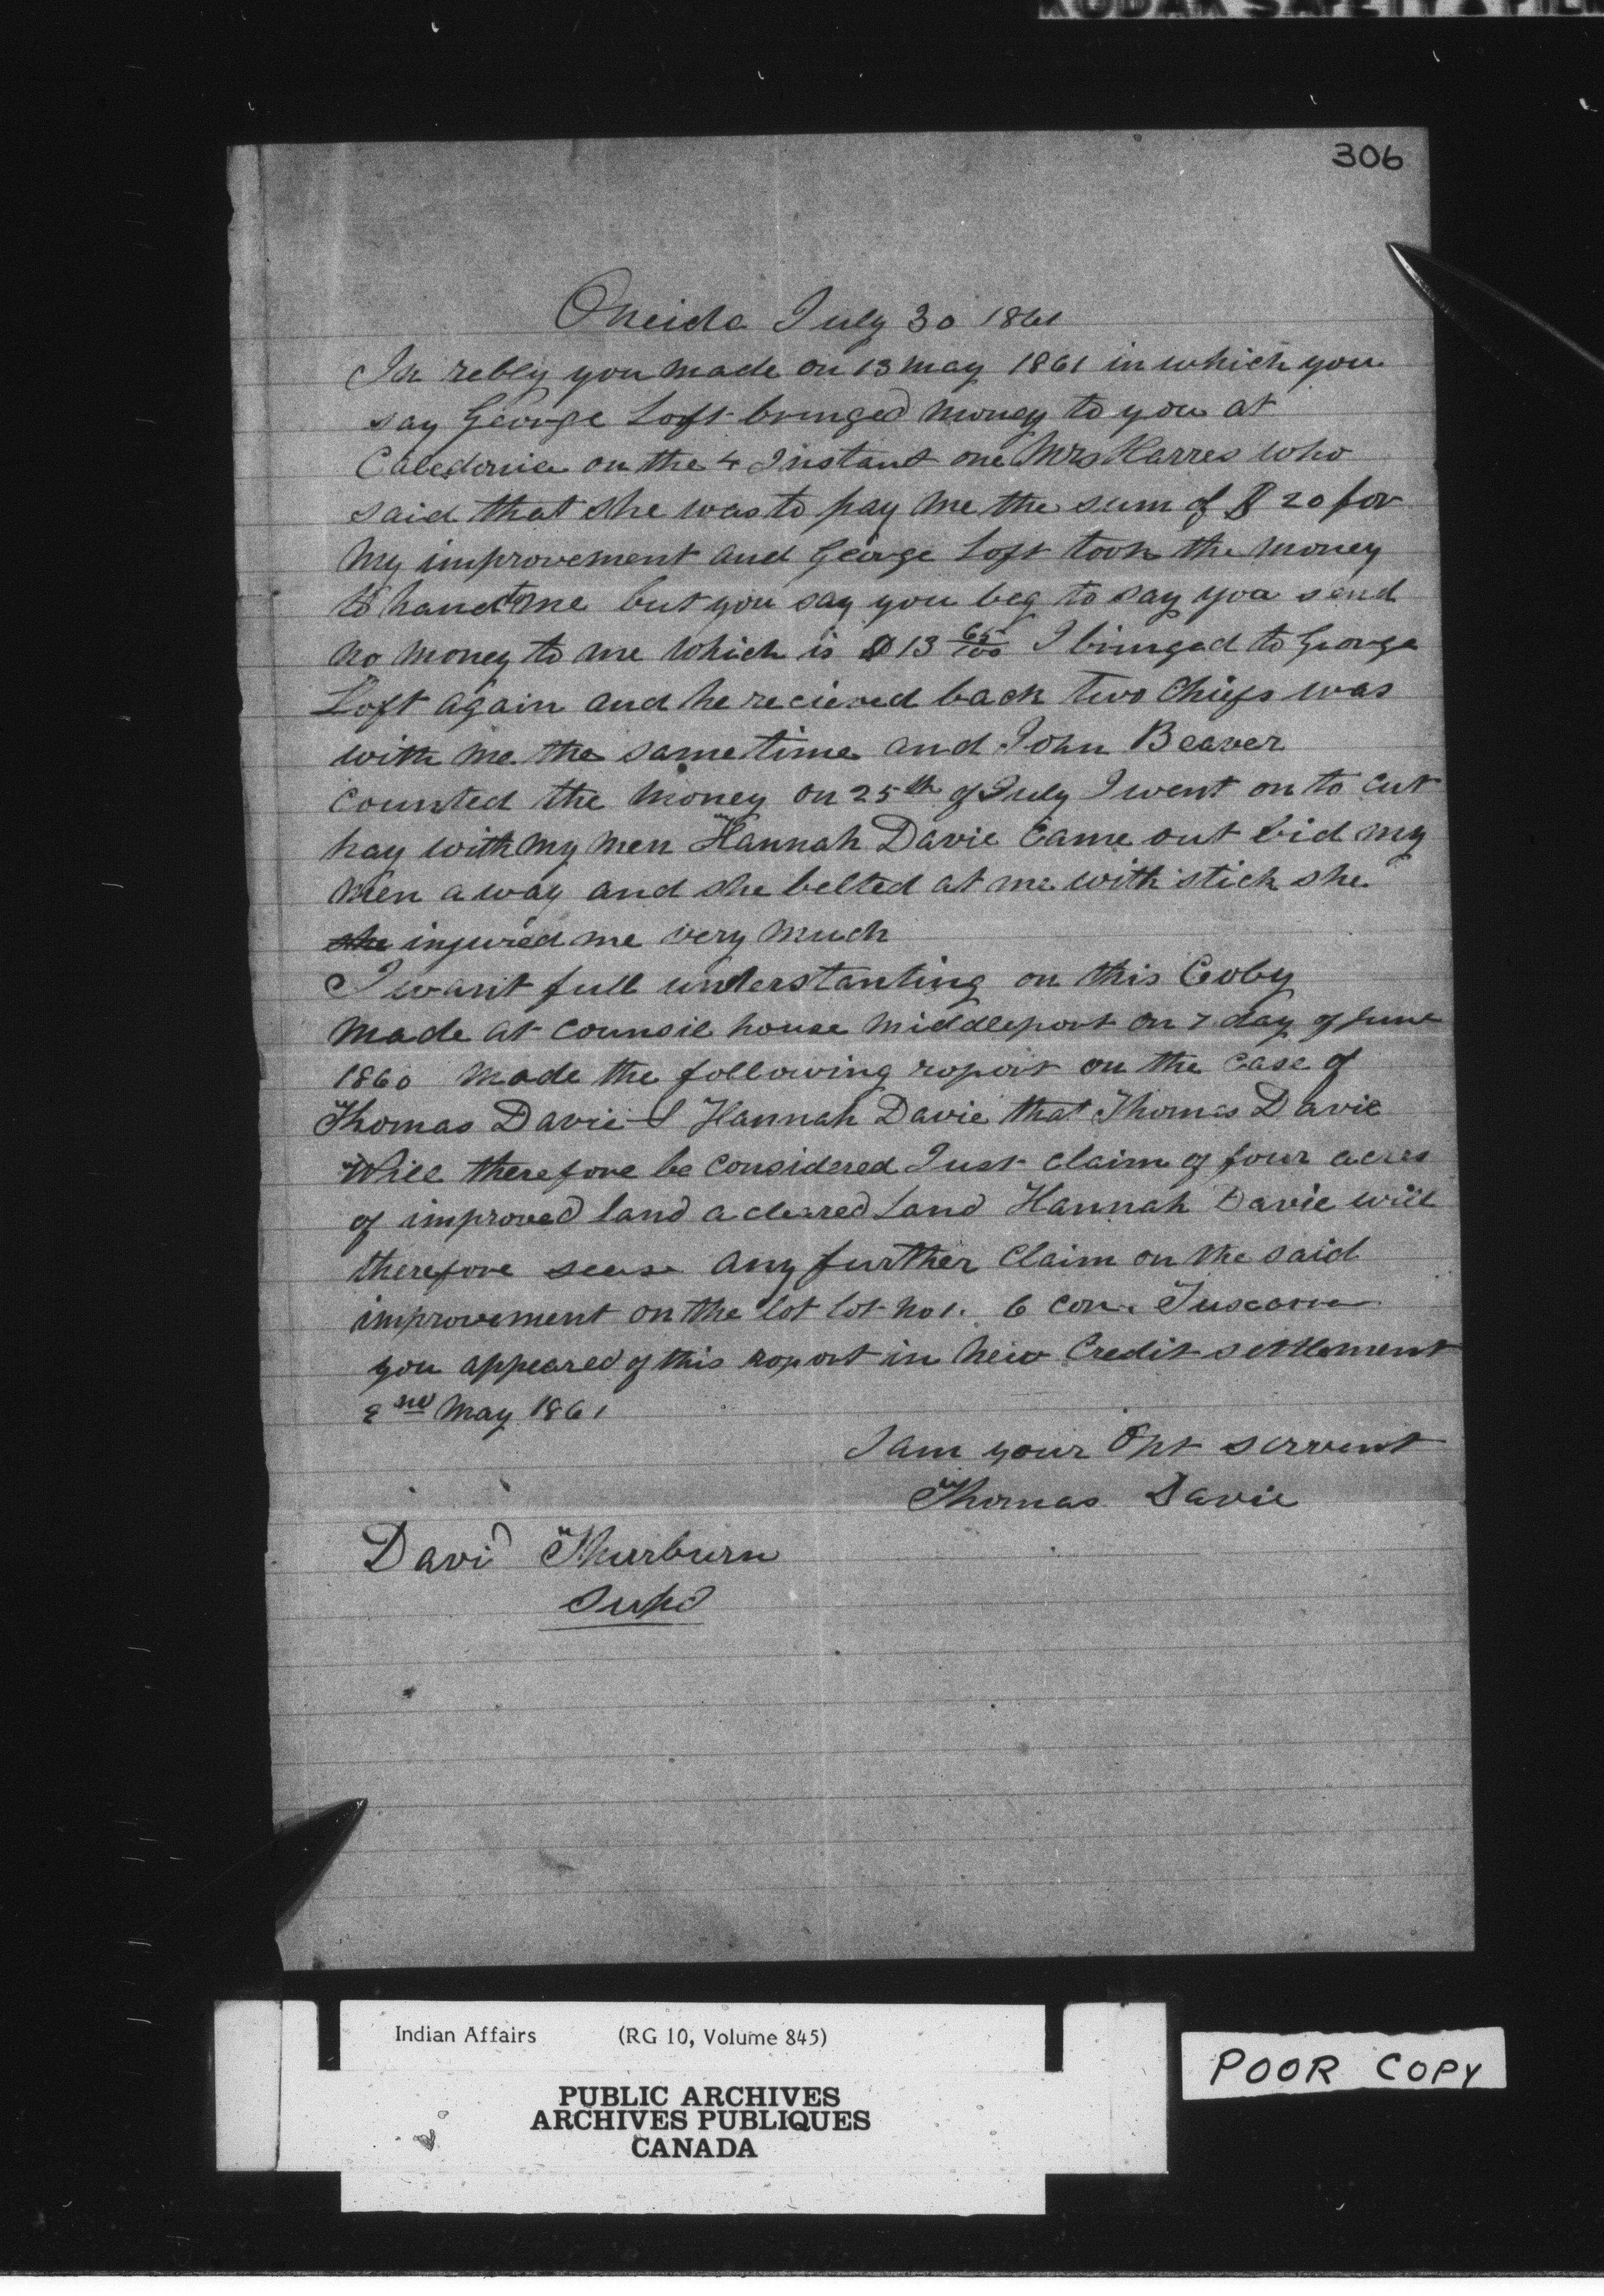 KODAK SAFETY FILM
306
Oneida July 30 1861
In rebly you made on 13 may 1861 in which you
say George Loft bringed money to you at
Caledonia on the 4 Instant one Mrs Harres who
said that she was to pay me the sum of $ 20 for
my improvement and George Loft took the money
to hand to me but you say you beg to say you send
no money to me which is $ 13 65/100 I bringed to George
Loft again and he recieved back Two Chiefs was
with me the same time and John Beaver
counted the money on 25th of July I went on to cut
hay with my men Hannah Davie Came out bid my
men away and she belted at me with stick she
she injured me very much
I want full understanting on this Coby
made at Counsil house middleport on 7 day of June
1860 made the following roport on the case of
Thomas Davie & Hannah Davie that Thomas Davie
Will therefore be Considered Just claim of four acres
of improved land a cleared Land Hannah Davie will
therefore sease any further Claim on the said
improvement on the lot lot no 1. 6 con. Tuscarora
you appeared of this roport in New Credit settlement
2nd May 1861
I am your Obt servent
Thomas Davie
Davi Thurburn
Supd
Indian Affairs (RG 10, Volume 845)
PUBLIC ARCHIVES
ARCHIVES PUBLIQUES
CANADA
POOR COPY